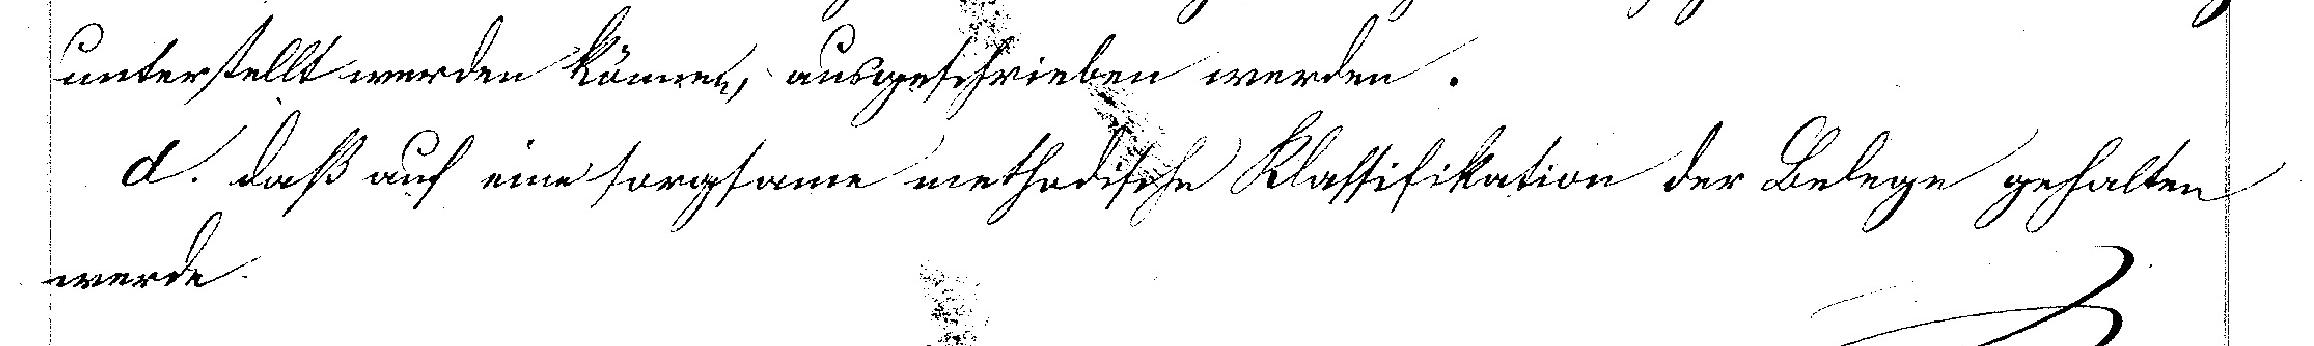 unterstellt werden können, ausgeschrieben werden.
d. daß auf eine sorgsame methodische Klassifikation der Belege gehalten
werde